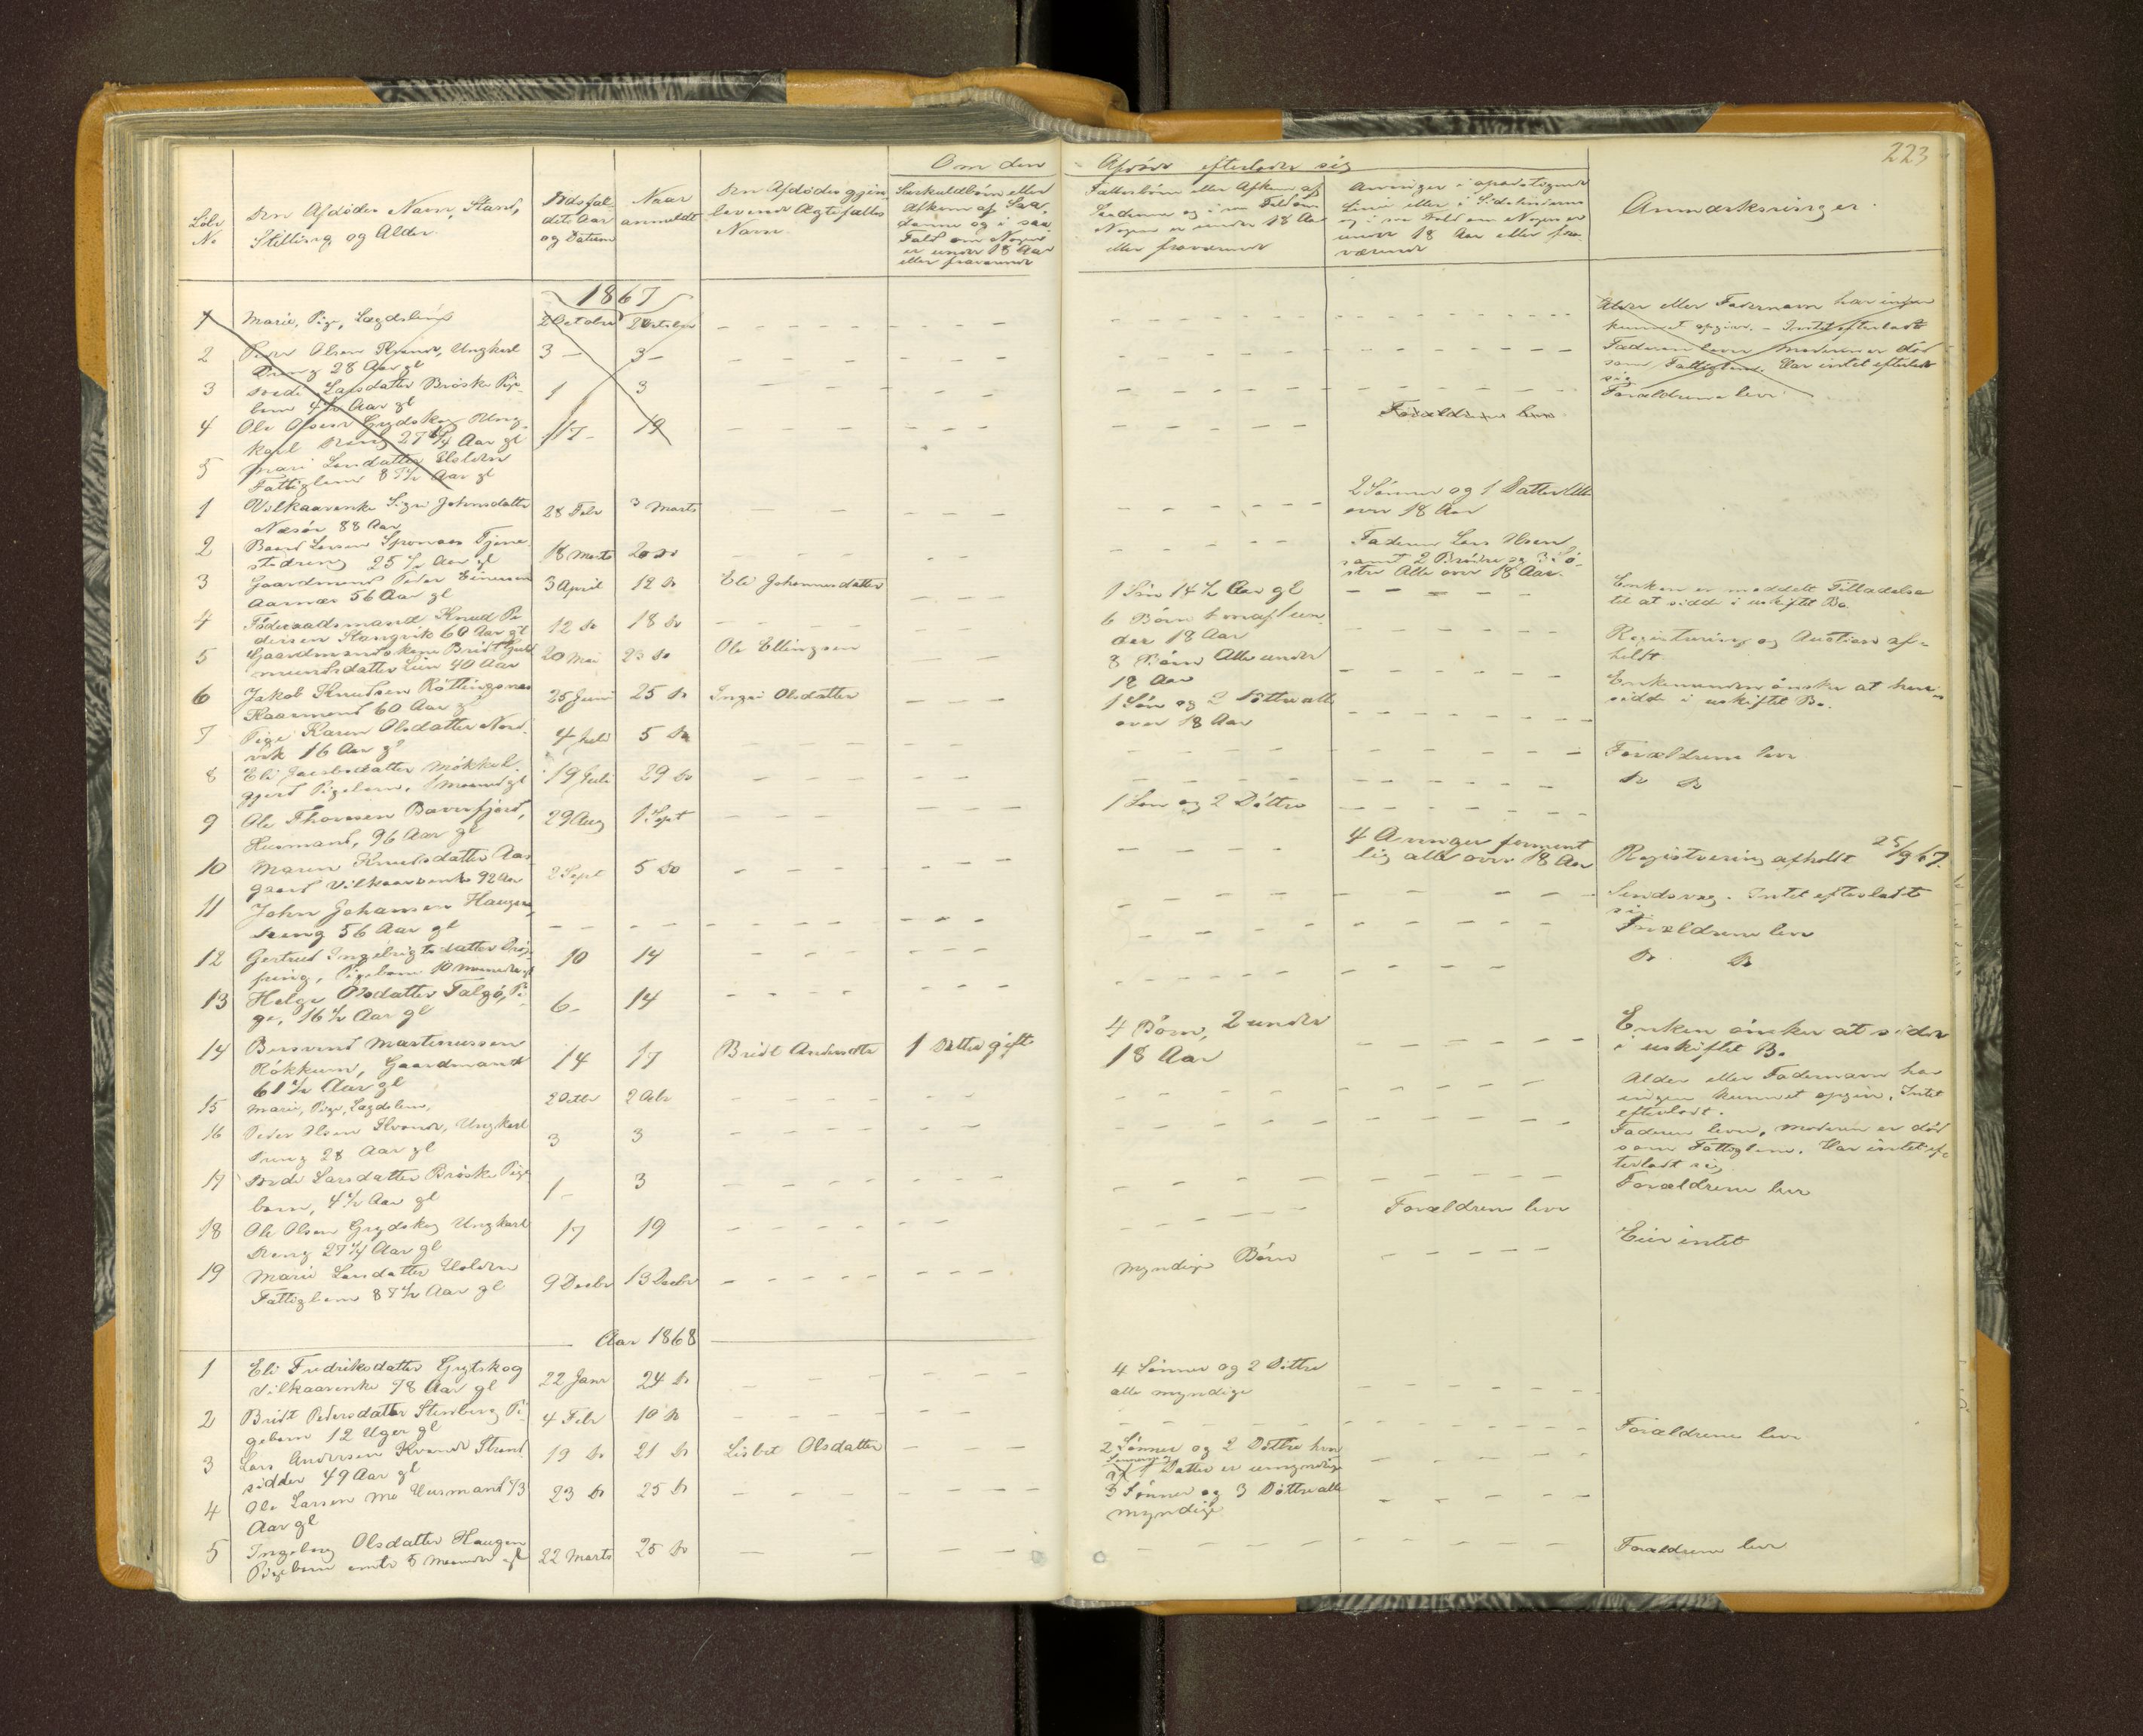 223
Om den Afdøde efterlader sig
Løbe No
Den Afdødes Navn, Stand, Stilling og Alder.
Dødsfaldets Aar og Datum
Naar anmeldt
Den Afdødes gjenlevende Ægtefælles Navn.
Særkuldbørn eller Afkom af Saadanne og i saa Fald om Nogen er under 18 Aar eller fraværende
Fællesbørn eller Afkom af Saadanne og i saa Fald om Nogen er under 18 Aar eller fraværende
Arvinger i opadstigende Linie eller i Sidelinierne og i saa Fald om Nogen er under 18 Aar eller fraværende
Anmærkninger.
1867
1 Marie, Pige, Lægdslem 2 October 2 October
Alder eller Fadernavn har ingen kunnet opgive. - Intet efterladt
2 Peder Olsen Kvande, Ungkarl Dreng 28 Aar gl 3 - 3 -
Faderen lever Moderen er død som Fattiglem. Har intet efterladt sig
3 Larsdatter Brøske Pigebarn 4 1/2 Aar gl 1 3
Forældrene lever
4 Ole Olsen Grydskog Ungkarl Dreng 27 1/4 Aar gl 17 - 19
Forældrene lever
5 Mari Larsdatter Fattiglem 87 1/2 Aar gl
1 Vilkaarenke Sigri Johnsdatter Næsøe 88 Aar 28 Febr 3 Marts
2 Sønner og 1 Datter Alle over 18 Aar
2 Baard Larsen Sponaas Tjenestedreng 25 1/2 Aar gl 18 Marts 20 Do
Faderen Lars Olsen samt 2 Brødre og 3 Søstre Alle over 18 Aar.
3 Gaardmand Peder Einersen Aarnæs 56 Aar gl 3 April 12 Do Eli Johannesdatter
1 Søn 14 1/2 Aar gl
Enken er meddelt Tilladelse til at sidde i uskiftet Bo.
4 Føderaadsmand Knud Pedersen Stangvik 60 Aar gl 12 Do 18 Do
6 Børn hvoraf 1 under 18 Aar
Registrering og Auction afholdt
5 Gaardmandskone Bridt Gudmundsdatter Lien 40 Aar 20 Mai 23 Do Ole Ellingsen
8 Børn Alle under 18 Aar
Enkemanden ønsker at hen- sidde i uskiftet Bo.
6 Jakob Knudsen Røttingsnæs Kaarmand 60 Aar gl 25 Juni 25 Do Ingri Olsdatter
1 Søn og 2 Døttre alle over 18 Aar
7 Pige Karen Olsdatter Nordvik 16 Aar gl 4 Juli 5 Do
Forældrene lever
8 Eli Jacobsdatter Møkkelgjerd Pigebarn, 1 Maaned gl 19 Juli 29 Do
Do Do
9 Ole Thoresen Bæverfjord, Husmand, 96 Aar gl 29 Aug 1 Sept
1 Søn og 2 Døttre
10 Maren Knudsdatter Aasgaard Vilkaarsenke 92 Aar 2 Sept 5 Do
4 Arvinger alle over 18 Aar
Registrering afholdt 25/9 67.
11 John Johansen Haugen, Dreng 56 Aar gl
Sindsvag. Intet efterladt sig.
12 Gertrud Ingebrigtsdatter Pigebarn 10 Maaneder gl 10 14
Forældrene lever
13 Helge Olsdatter Talgø, Pige, 16 1/2 Aar gl 6 - 14
Do Do
14 Bersvend Martinussen Røkkum, Gaardmand 61 1/2 Aar gl 14 17 Bridt Andersdtr 1 Datter gift
4 Børn, 2 under 18 Aar
Enken ønsker at sidde i uskiftet Bo
15 Marie, Pige, Lægdslem, 2 Octbr 2 Octbr
Alder eller Fadernavn har ingen kunnet opgive, Intet efterladt.
16 Peder Olsen Kvande, Ungkarl Dreng 28 Aar gl 3 3
Faderen lever, Moderen er død som Fattiglem. Har intet efterladt sig
17 Larsdatter Brøske Pigebarn, 4 1/2 Aar gl 1 - 3
Forældrene lever
18 Ole Olsen Grydskog Ungkarl Dreng 27 1/4 Aar gl 17 19
Forældrene lever
19 Marie Larsdatter Fattiglem 87 1/2 Aar gl 9 Decbr 13 Decbr
Myndige Børn
Eier intet
Aar 1868
1 Eli Fredriksdatter Grytskog Vilkaarenke 78 Aar gl 22 Janr 24 Do
4 Sønner og 2 Døttre alle myndige
2 Bridt Pedersdatter Stenberg Pigebarn 12 Uger gl 4 Febr 10 Do
Forældrene lever
3 Lars Andersen Kvande Strandsidder 49 Aar gl 19 Do 21 Do Lisbet Olsdatter
2 Sønner og 2 Døttre hvoraf Sønnerne og 1 Datter er umyndige
4 Ole Larsen Mo Husmand 73 Aar gl 23 Do 25 Do
3 Sønner og 3 Døttre alle myndige
5 Ingeborg Olsdatter Haugen Pigebarn omtr 5 Maaneder gl 22 Marts 25 Do
Forældrene lever